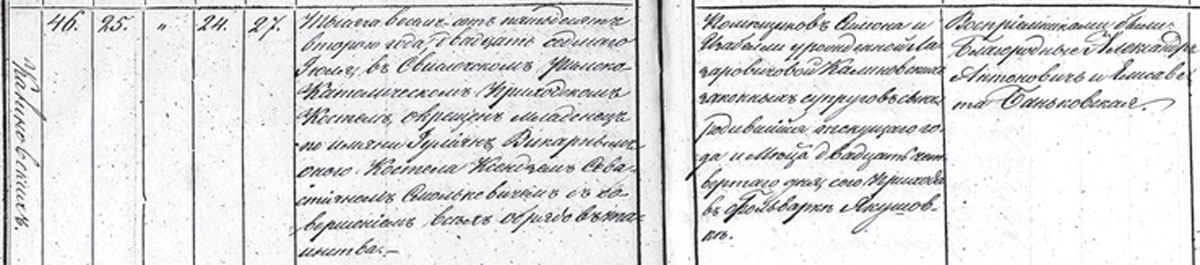 46. 25. „ 24. 27.
Калиновскихъ.
Тысяча восемь-сотъ пятьдесятъ
втораго года, двадцать седмаго
Іюля, въ Свислочскомъ Римско-
Католическомъ Приходскомъ
Костелѣ, окрещенъ младенецъ
по имени Юліянъ Викарнымъ
оного Костела Ксендзомъ Сева-
стіяномъ Смольковичемъ съ со-
вершеніемъ всѣхъ обрядовъ та-
инства.—
Симона и
Изабеллы урожденной Ла-
заровичовой Калиновскихъ
законныхъ супруговъ сынъ
родившійся текущаго го-
да и Мѣсяца двадцать чет-
вертаго дня, сого Прихода
въ Фольваркѣ Якушов-
кѣ.
Воспріемниками были
Благородные Александръ
Антоновичъ и Елисаве-
та Баньковская.